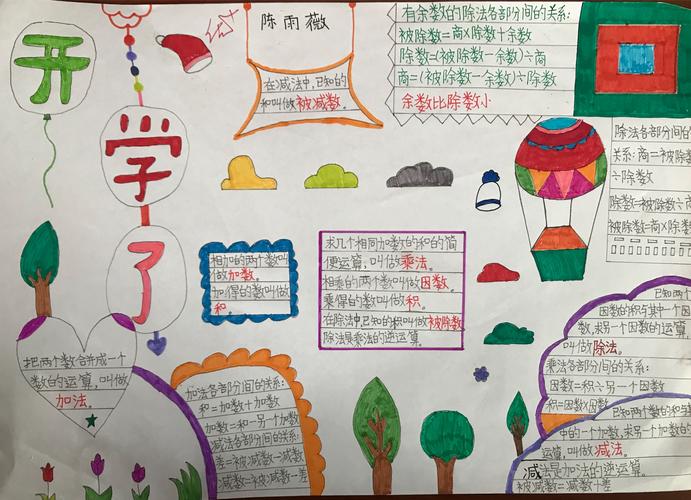 开
学
了
陈雨薇
在减法中,已知的
和叫做被减数。
有余数的除法各部分间的关系:
被除数=商×除数+余数
除数=(被除数-余数)÷商
商=(被除数-余数)÷除数
余数比除数小
除法各部分间的
关系:商=被除数
÷除数
除数=被除数÷商
被除数=商×除数
相加的两个数叫
做加数。
加得的数叫做
和。
求几个相同加数的和的简
便运算,叫做乘法。
相乘的两个数叫做因数。
乘得的数叫做积。
在除法中,已知的积叫做被除数
除法是乘法的逆运算。
把两个数合并成一个
数的运算,叫做
加法。
加法各部分间的关系:
和=加数+加数
加数=和-另一个加数
减法各部分间的关系:
差=被减数-减数
减数=被减数-差
已知两个
因数的积与其中一个因
数,求另一个因数的运算,
叫做除法。
乘法各部分间的关系:
因数=积÷另一个因数
积=因数×因数
已知两个数的和与
中的一个加数,求另一个加数的
运算,叫做减法。
减法是加法的逆运算。
被减数=减数+差